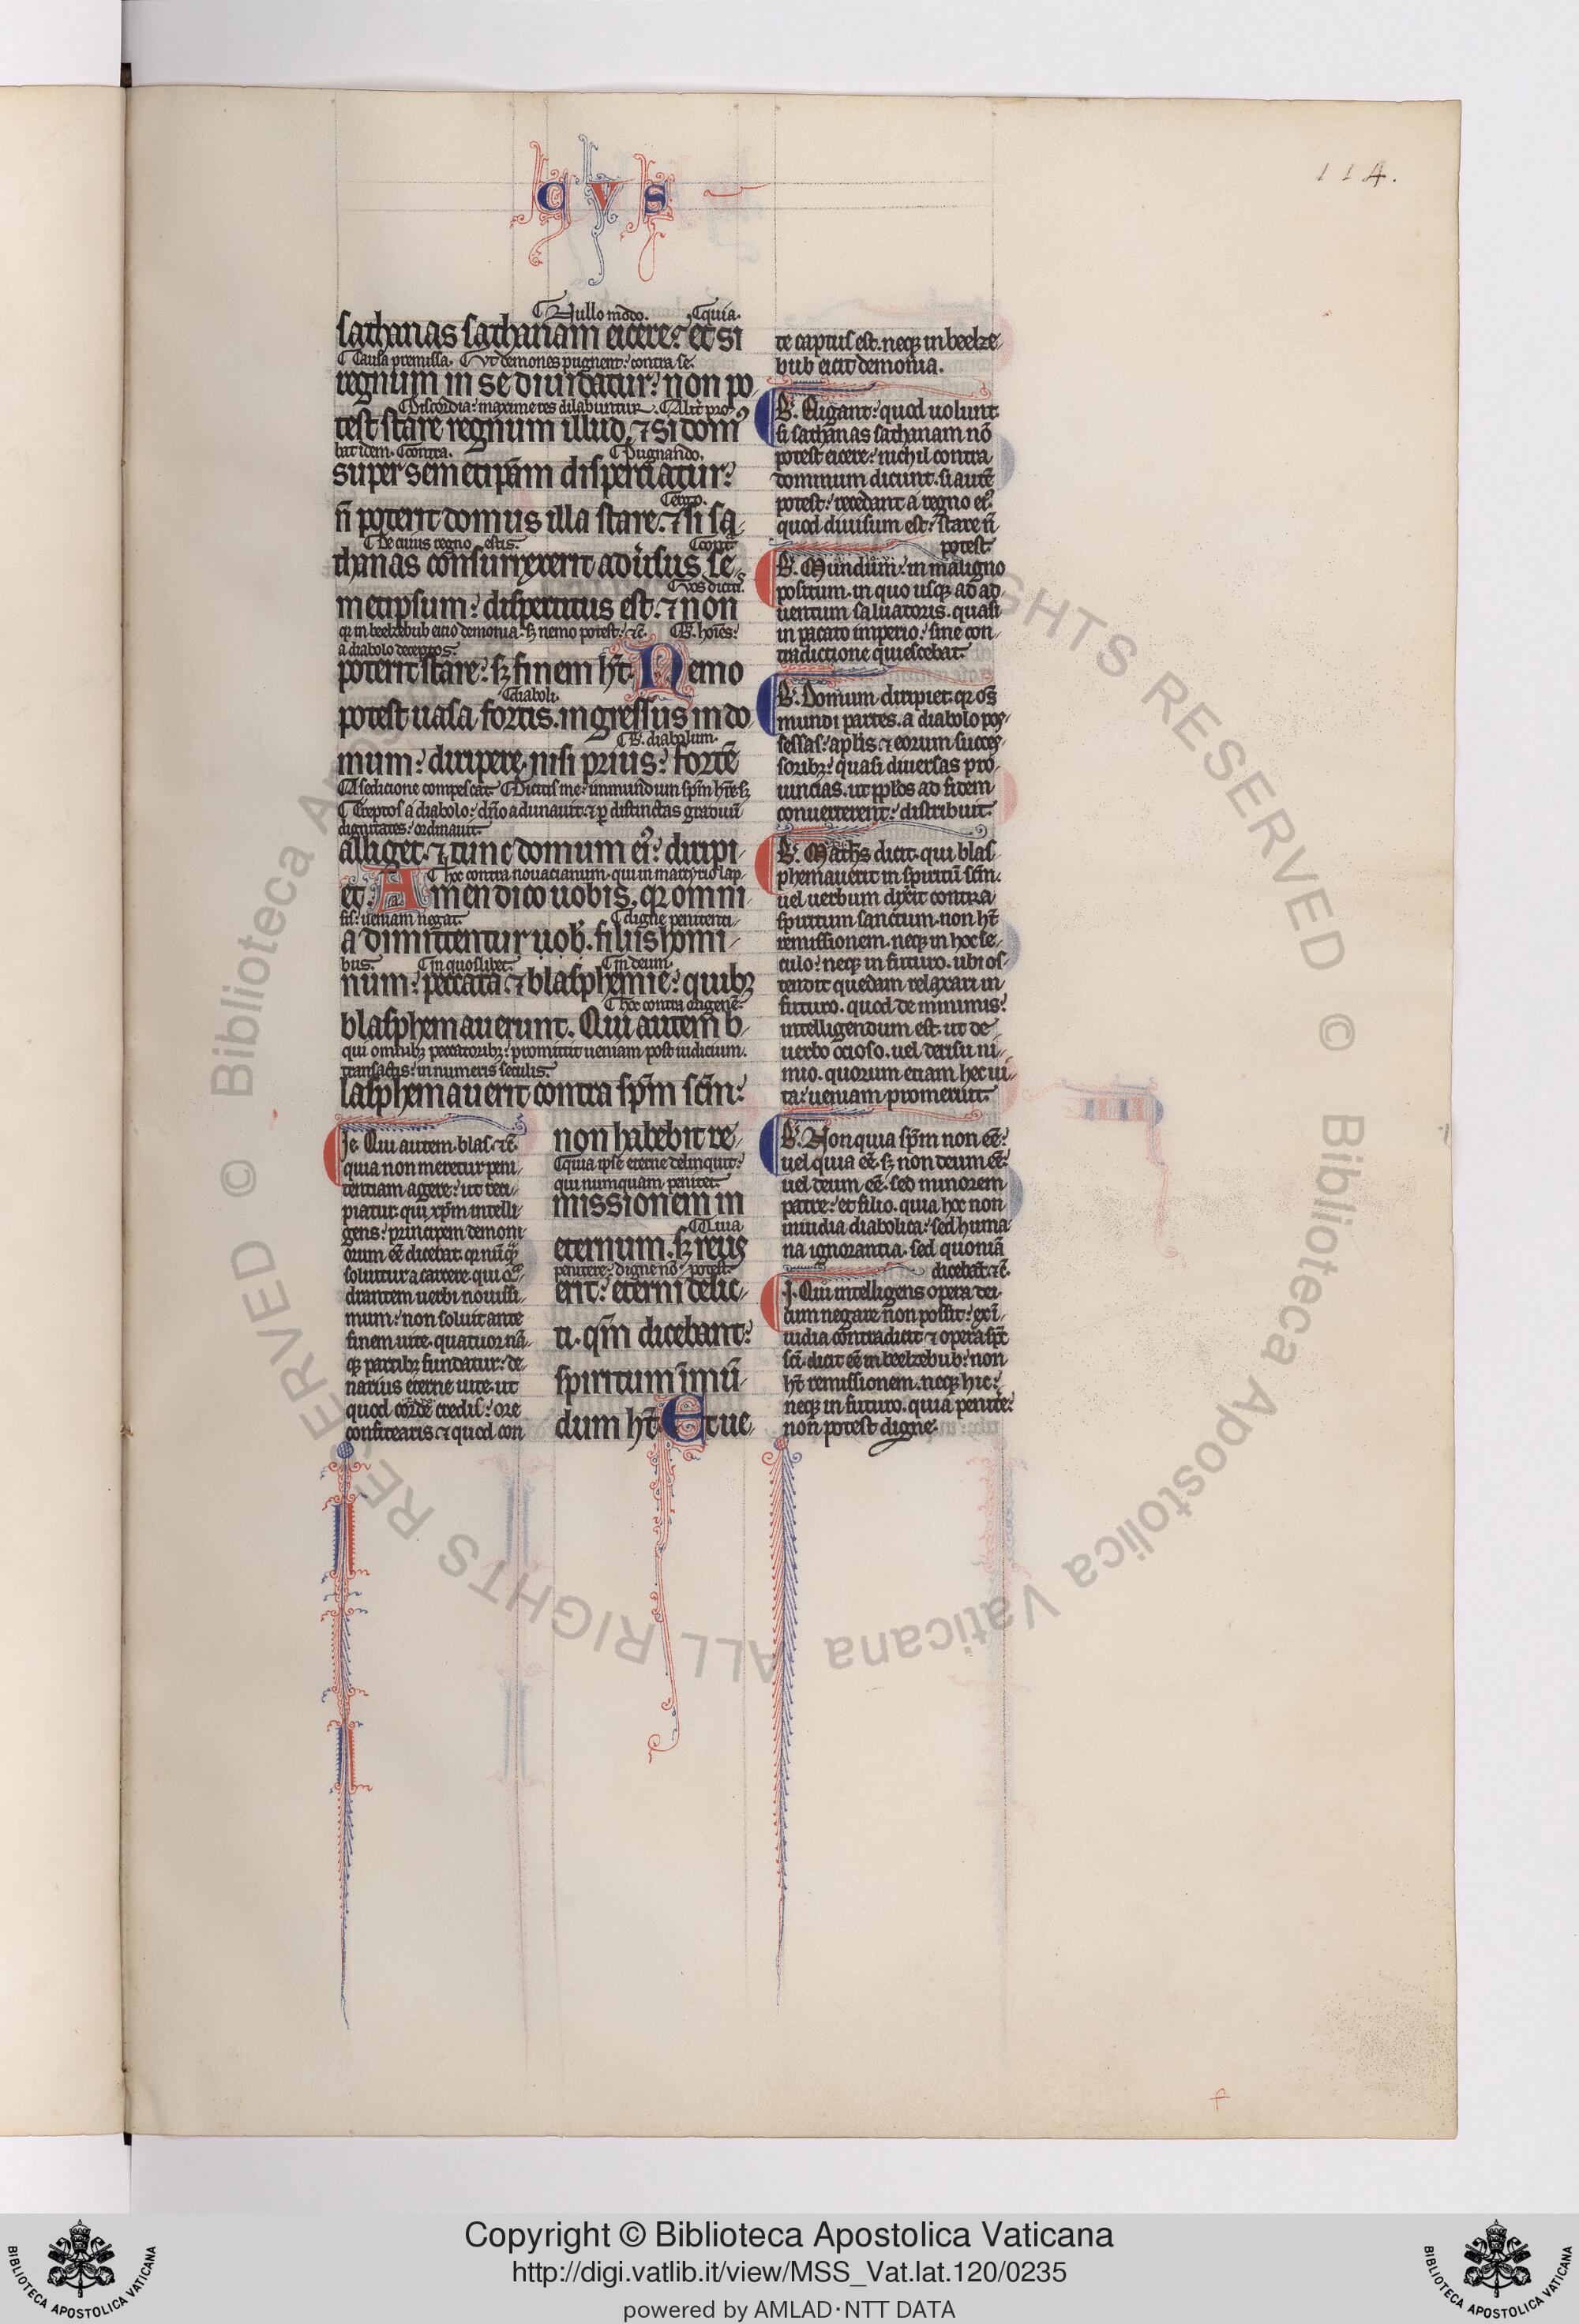 114.
C V S
Nullo modo. quia.
sathanas sathanam eicere? et si
Causa premissa. Vt demones pugnent: contra se.
regnum in se diuidatur: non po-
Discordia: maxime res dilabuntur. Alit̾ pro-
test stare regnum illud. ⁊ si dom᷒
bat idem. contra. Pugnando.
super semetip̄am disperciatur:
n̄ poterit domus illa stare. ⁊ si sa-
De cuius regno estis. cont̾
thanas consurrexerit adu̾sus se-
Vos dicitis
metipsum: dispertitus est: ⁊ non
qr in beelzebub eicio demonia. sꝫ nemo potest: ⁊c̄. B. hoīes:
a diabolo deceptos.
poterit stare: sꝫ finem ht̄. Nemo
diaboli.
potest uasa fortis. ingressus in do-
B. diabolum.
mum: diripere. nisi prius: fortē
A sedicione compescat. Dicitis me: inmundum sp̄m ht̄e. sꝫ
Ereptos a diabolo: dn̄o adunauit: ⁊ ꝑ distinctas graduū
dignitates: ordinauit.
alliget. ⁊ tunc domum ei᷒: diripi-
hoc contra nouacianum. qui in martyrio lap-
et. Amen dico uobis. qr omni-
sis: ueniam negat. digne penitenti-
a dimittentur uob̾. filiis homi-
bus. in quoslibet. in deum.
num: peccata. ⁊ blasphemie: quibꝫ
hoc contra origenē:
blasphemauerunt. Qui autem b-
qui omnibꝫ peccatoribꝫ: promittit ueniam post iudicium.
transactis: in numeris seculis.
lasphemauerit contra sp̄m sc̄m:
Je. Qui autem. blas. ⁊c̄.
quia non meretur peni-
tentiam agere: ut reci-
piatur. qui xp̄m intelli-
gens: principem demoni-
orum ee̅ dicebat. qr nūqͣ
soluitur a carcere. qui qͣ-
drantem uerbi nouissi-
mum: non soluit ante
finem uite. quatuor nā-
qꝫ partibꝫ fundatur: de-
narius eterne uite. ut
quod corde credis: ore
confitearis. ⁊ quod con
non habebit re-
quia ipse eterne delinquit:
qui numquam penitet.
missionem in
Quia
eternum. sꝫ reus
penitere: digne nō potest.
erit: eterni delic-
ti. qm̄ dicebant:
spiritum īmū-
dum ht̄. Et ue-
te captus est. neqꝫ in beelze-
bub eicit demonia.
B. Eligant: quod uolunt.
si sathanas sathanam nō
potest eicere: nichil contra
dominum dicunt. si autē
potest: recedant a regno ei᷒.
quod diuisum est: stare n̄
potest.
B. Mundum: in maligno
positum. in quo usqꝫ ad ad-
uentum saluatoris. quasi
in pacato imperio: sine con-
tradictione quiescebat.
B. Domum diripiet. qr om̄s
mundi partes. a diabolo pos-
sessas: apl̄is ⁊ eorum succes-
soribꝫ: quasi diuersas pro-
uincias. ut ppl̄os ad fidem
conuerterent: distribuit.
B. Math̄s dicit. qui blas-
phemauerit in spiritū sc̄m.
uel uerbum dixerit contra
spiritum sanctum. non ht̄
remissionem. neqꝫ in hoc se-
culo: neqꝫ in futuro. ubi os-
tendit quedam relaxari in
futuro. quod de minimis:
intelligendum est. ut de
uerbo ocioso. uel derisu ni-
mio. quorum etiam hec ui-
ta: ueniam promeruit.
B. Non quia sp̄m non ee̅:
uel quia ee̅. sꝫ non deum ee̅:
uel deum ee̅. sed minorem
patre: et filio. quia hoc non
inuidia diabolica: sed huma-
na ignorantia. sed quoniā
dicebāt. ⁊c̄.
J. Qui intelligens opera dei.
cum negare non possit: ex ī-
uidia contradicit. ⁊ opera sp̄c
sc̄i. dicit ee̅ in beelzebub: non
ht̄ remissionem. neqꝫ hic:
neqꝫ in futuro. quia penite᷒
non potest digne.
Copyright © Biblioteca Apostolica Vaticana
http://digi.vatlib.it/view/MSS_Vat.lat.120/0235
powered by AMLAD·NTT DATA
BIBLIOTECA APOSTOLICA VATICANA
BIBLIOTECA APOSTOLICA VATICANA
© Biblioteca Apostolica Vaticana ALL RIGHTS RESERVED
© Biblioteca Apostolica Vaticana ALL RIGHTS RESERVED